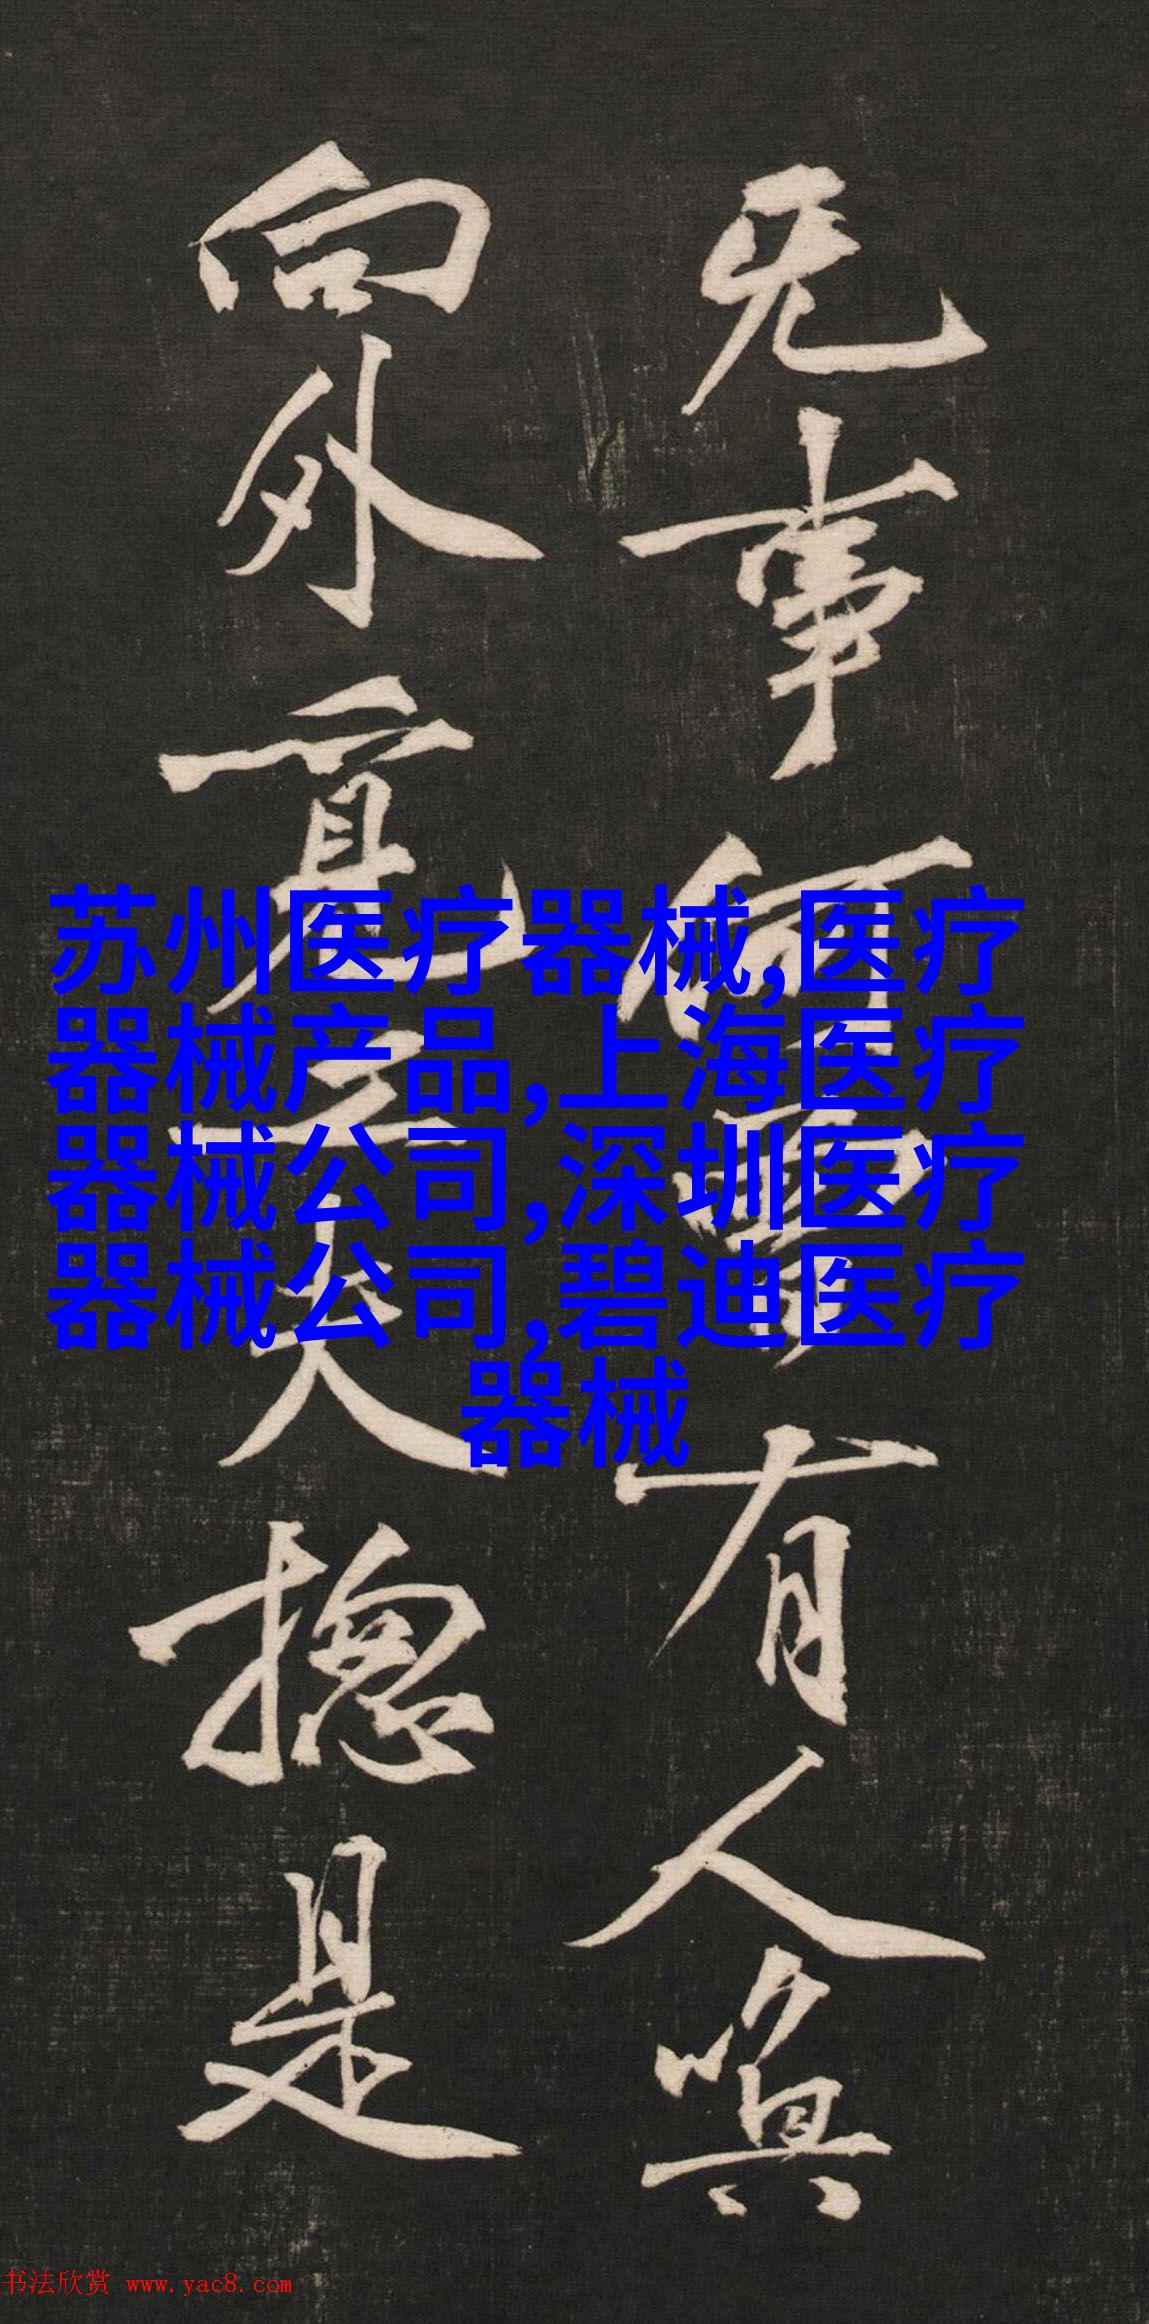 无事何有人喚
向外覓工夫揔是
苏州医疗器械,医疗
器械产品,上海医疗
器械公司,深圳医疗
器械公司,碧迪医疗
器械
书法欣赏 www.yac8.com